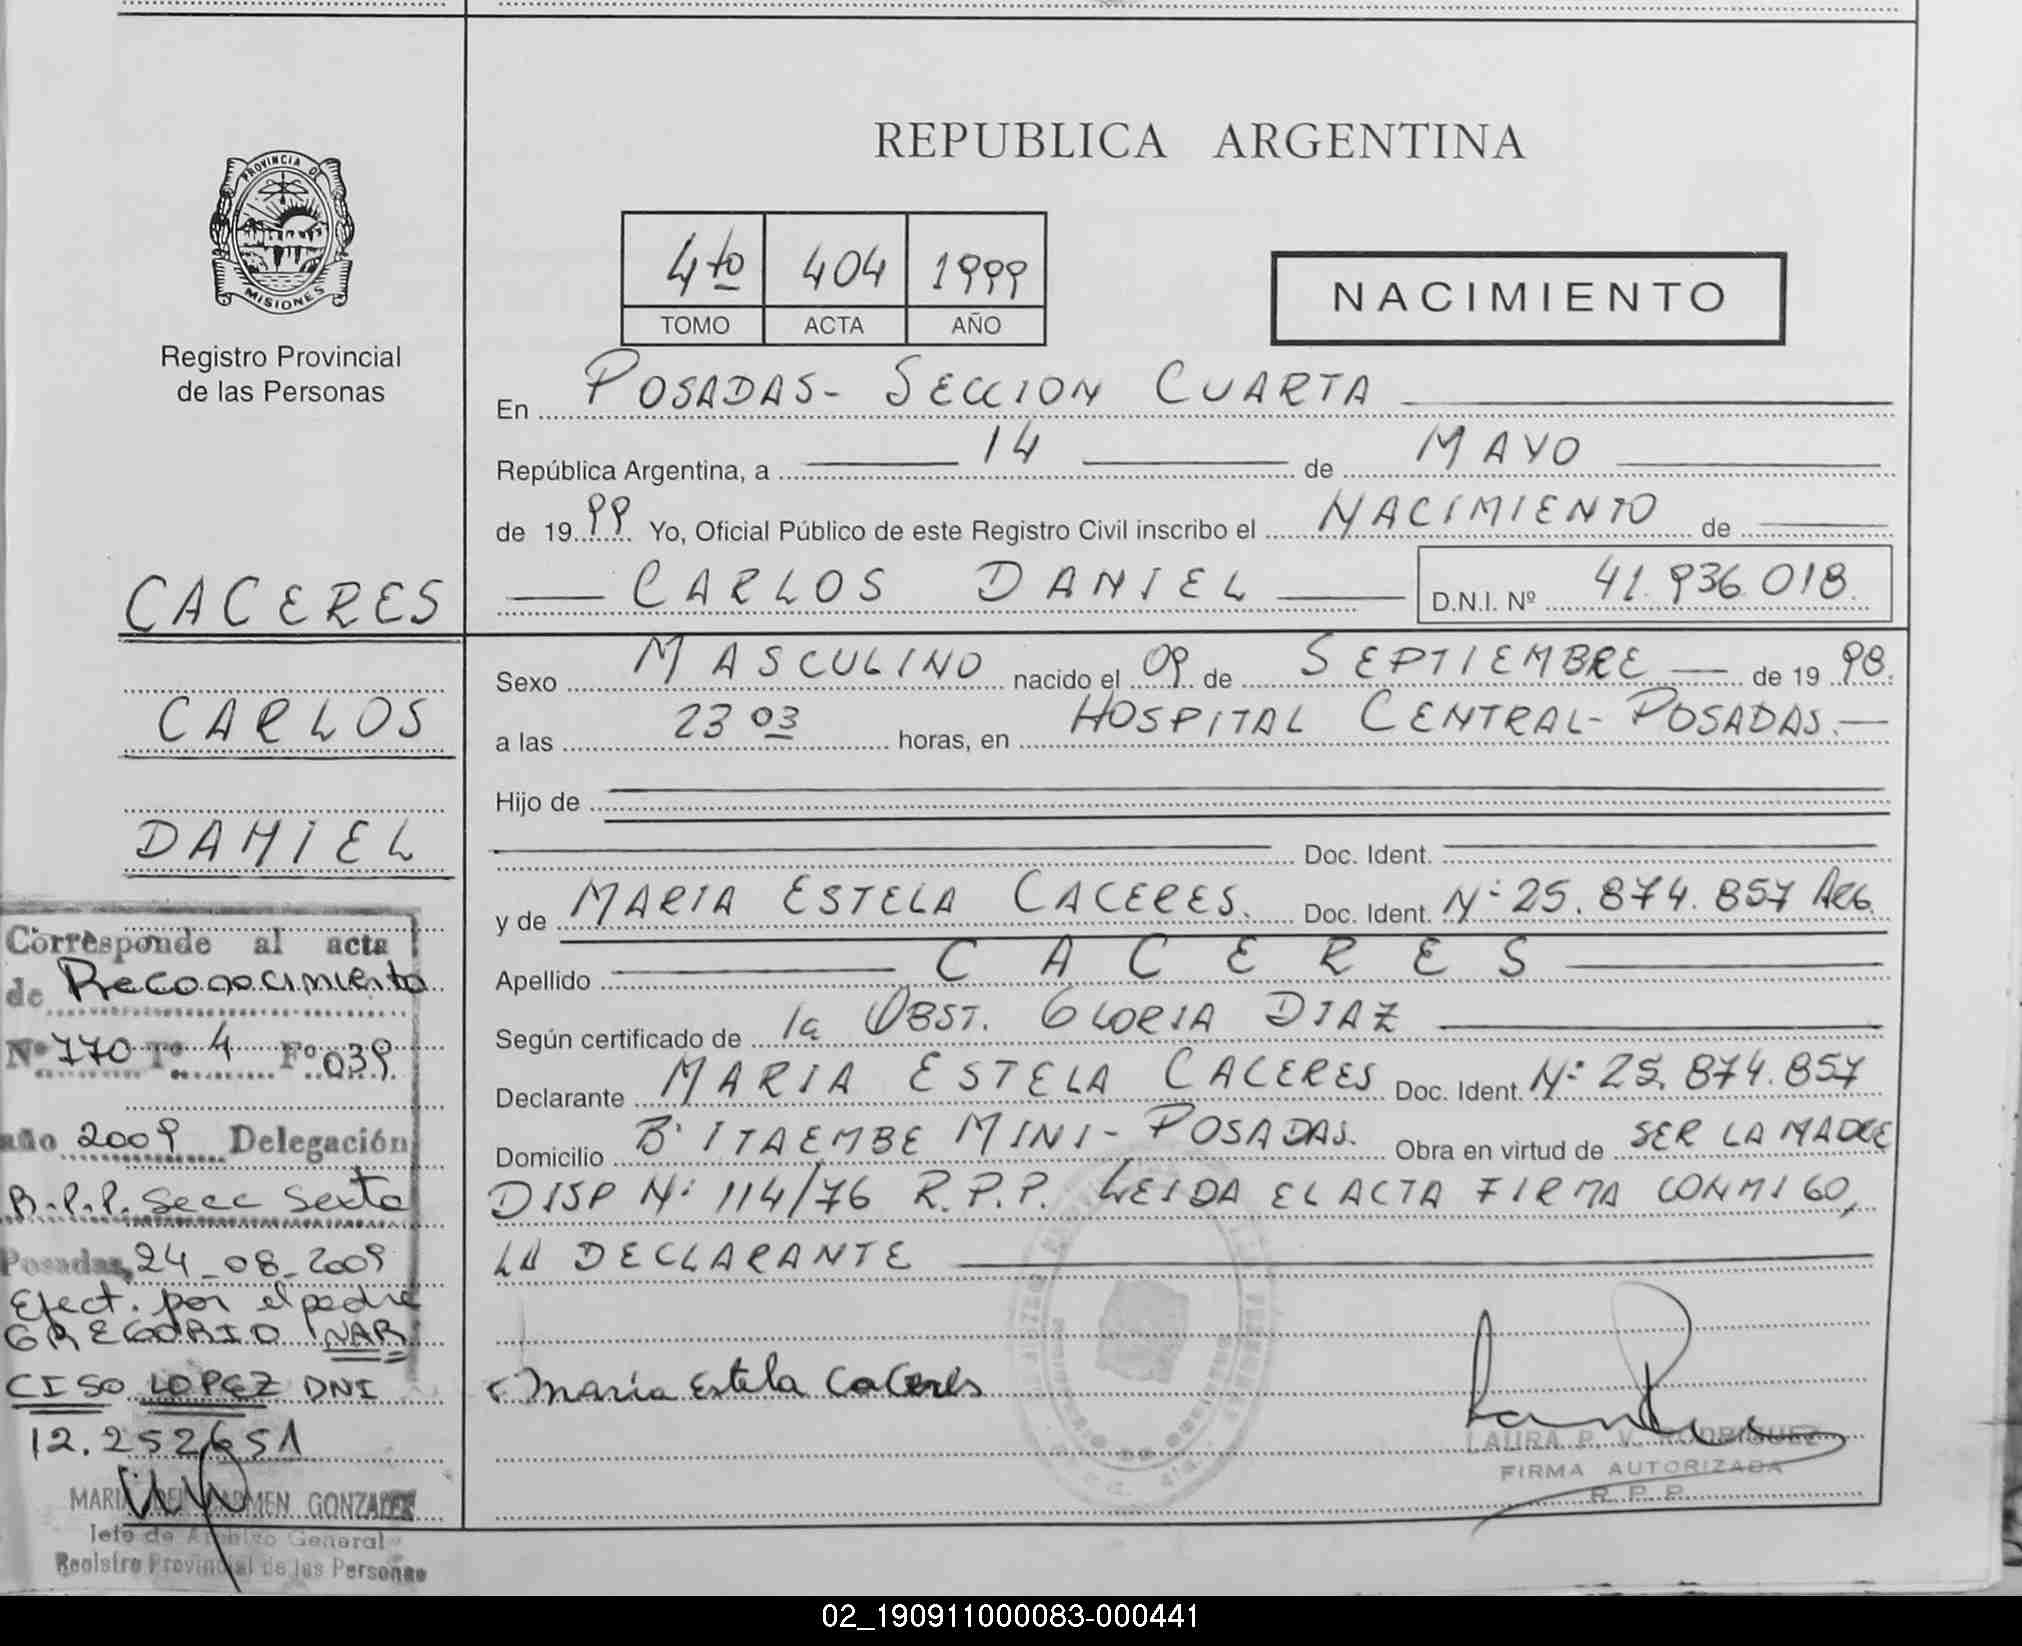 REPUBLICA ARGENTINA
PROVINCIA DE
MISIONES
Registro Provincial
de las Personas
4to 404 1999
TOMO ACTA AÑO
NACIMIENTO
En POSADAS- SECCION CUARTA
República Argentina, a 14 de MAYO
de 1999 Yo, Oficial Público de este Registro Civil inscribo el NACIMIENTO de
CARLOS DANIEL D.N.I. Nº 41.936.018.
CACERES
CARLOS
DANIEL
Sexo MASCULINO nacido el 09 de SEPTIEMBRE de 1998.
a las 23 03 horas, en HOSPITAL CENTRAL- POSADAS.
Hijo de
Doc. Ident.
y de MARIA ESTELA CACERES. Doc. Ident. Nº 25.874.857 ARG.
Apellido CACERES
Según certificado de la OBST. GLORIA DIAZ
Declarante MARIA ESTELA CACERES Doc. Ident. Nº 25.874.857
Domicilio Bº ITAEMBE MINI- POSADAS. Obra en virtud de SER LA MADRE
DISP Nº 114/76 R.P.P. LEIDA EL ACTA FIRMA CONMIGO,
LA DECLARANTE
Maria Estela Caceres
LAURA P. V. RODRIGUEZ
FIRMA AUTORIZADA
R.P.P.
Corresponde al acta
de Reconocimiento
Nº 770 Tº 4 Fº 039
año 2009 Delegación
R.P.P. Secc Sexta
Posadas, 24-08-2009
Efect. por el padre
GREGORIO NAR
CISO LOPEZ DNI
12.252651
MARIA DEL CARMEN GONZALEZ
Jefe de Archivo General
Registro Provincial de las Personas
02_190911000083-000441